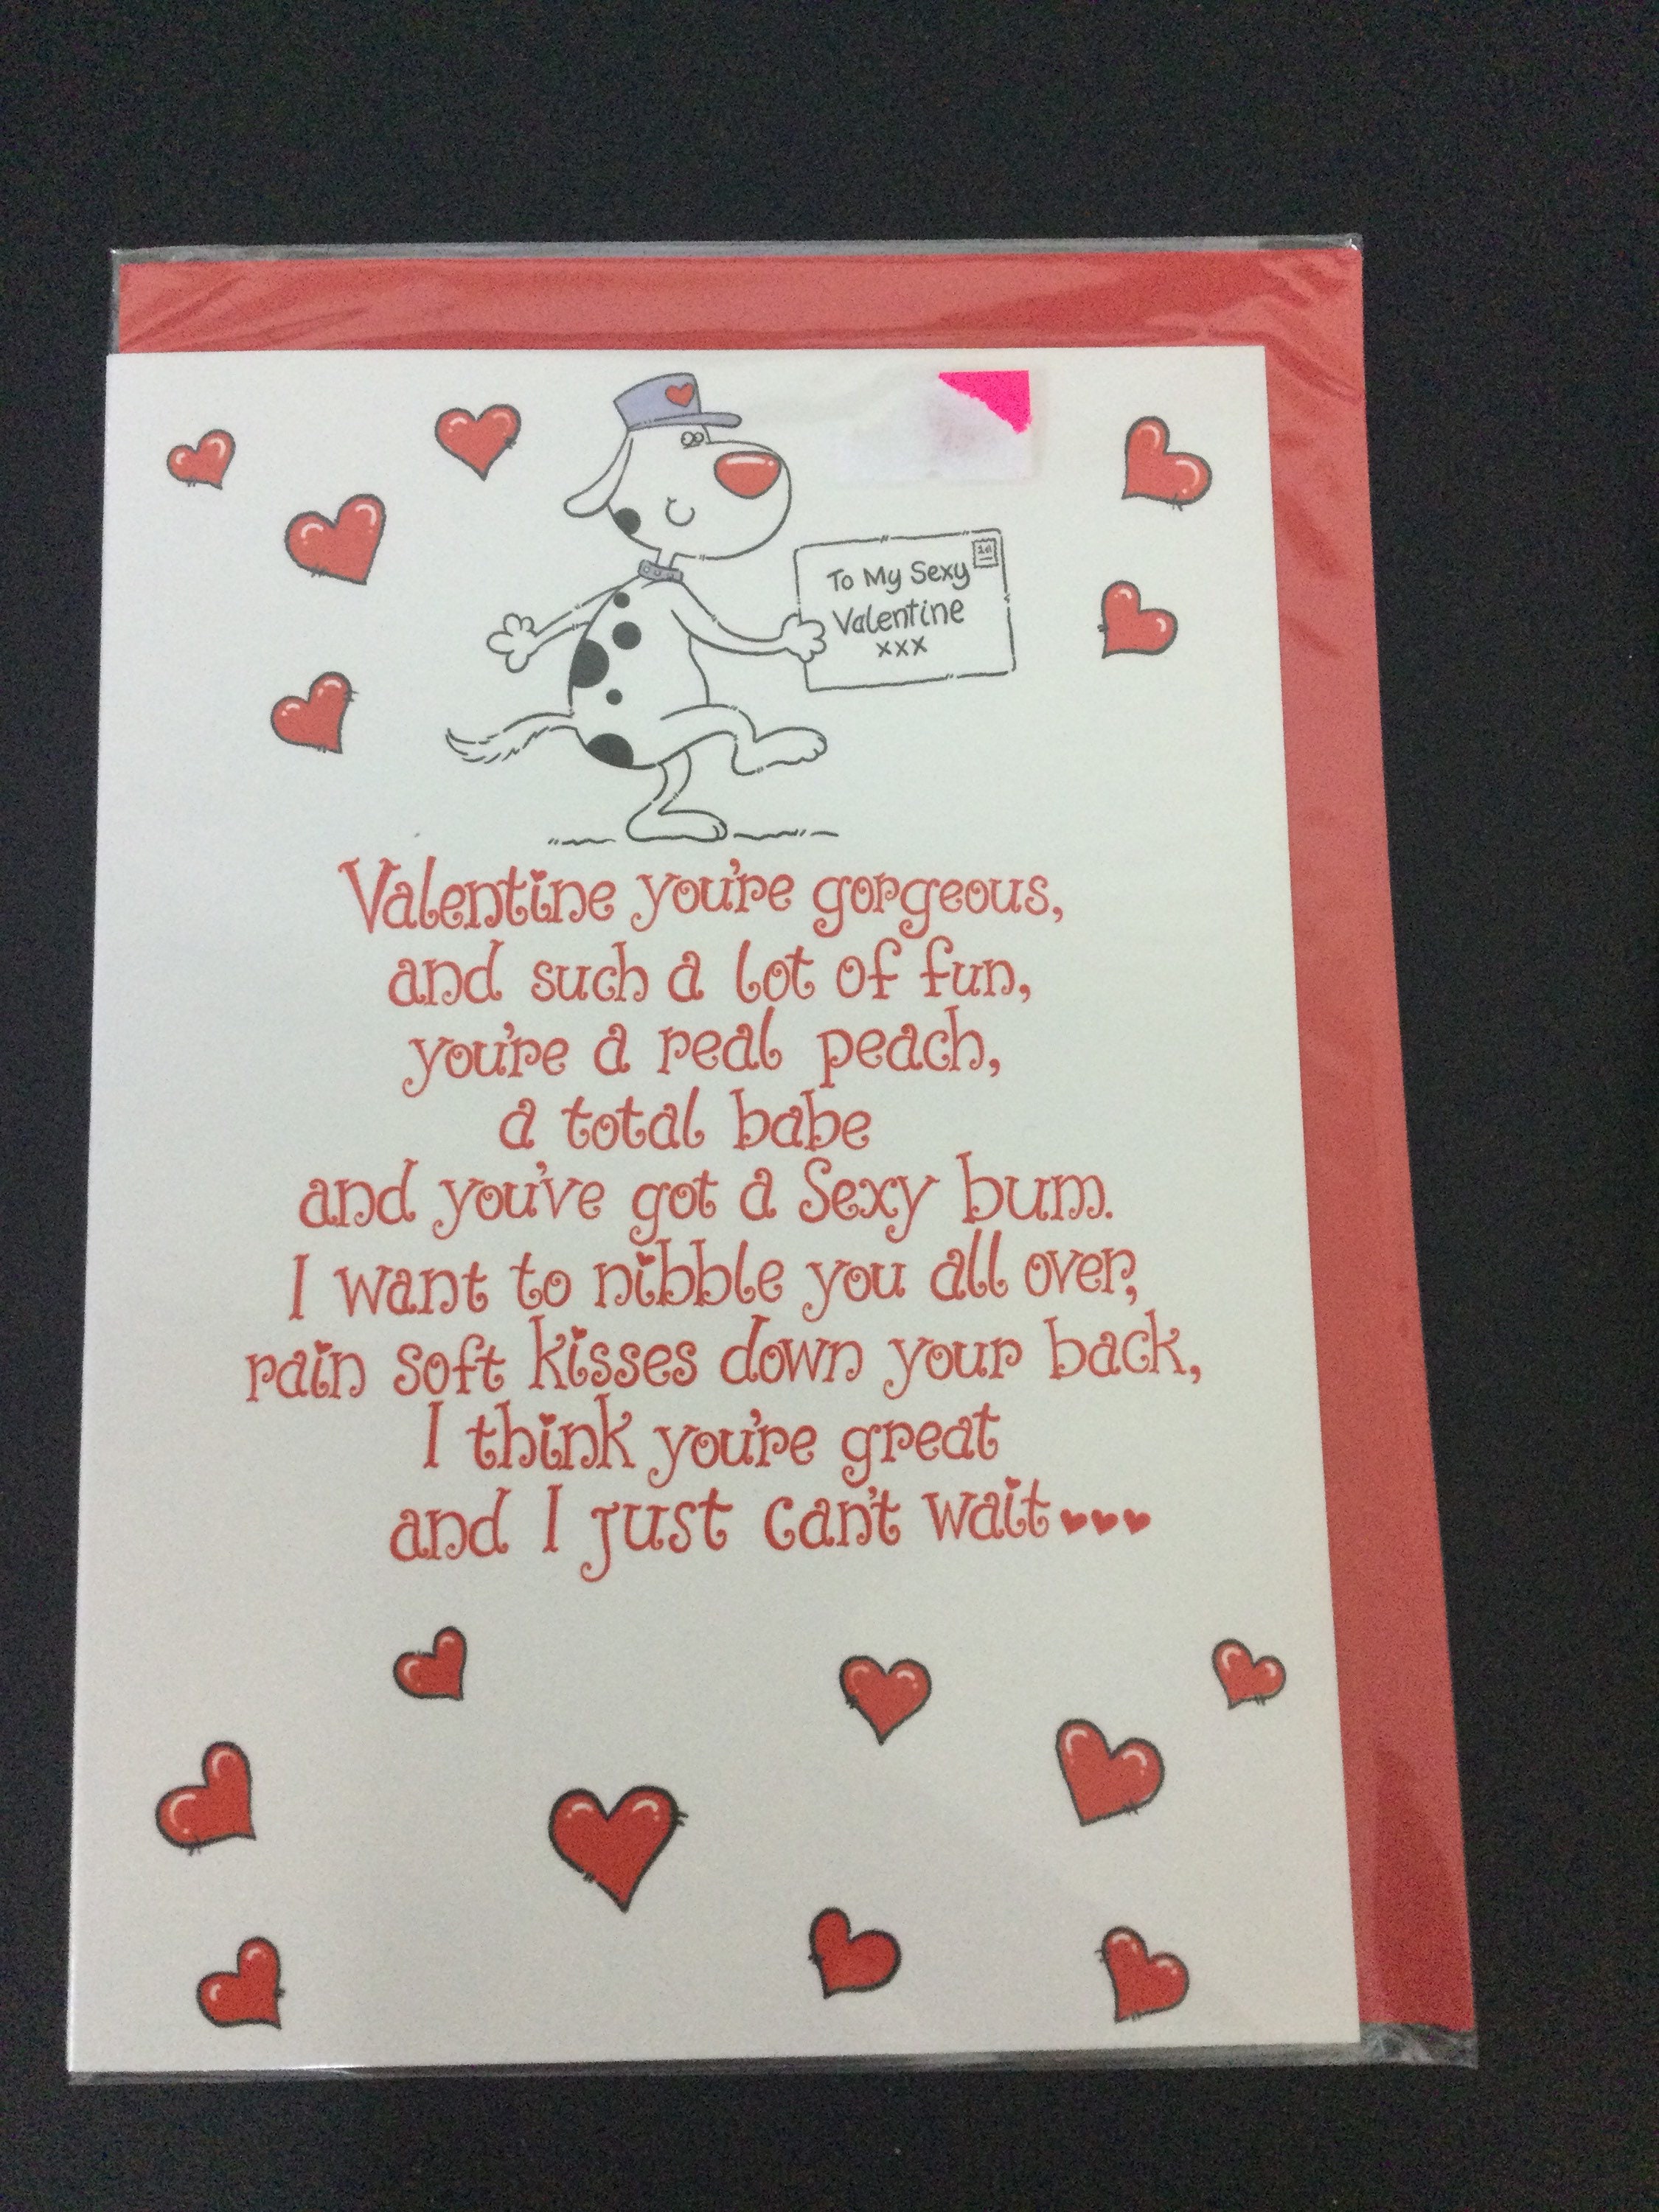 To My Sexy
Valentine
xxx
Valentine you're gorgeous,
and such a lot of fun,
you're a real peach,
a total babe
and you've got a Sexy bum.
I want to nibble you all over,
rain soft kisses down your back,
I think you're great
and I just can't wait...